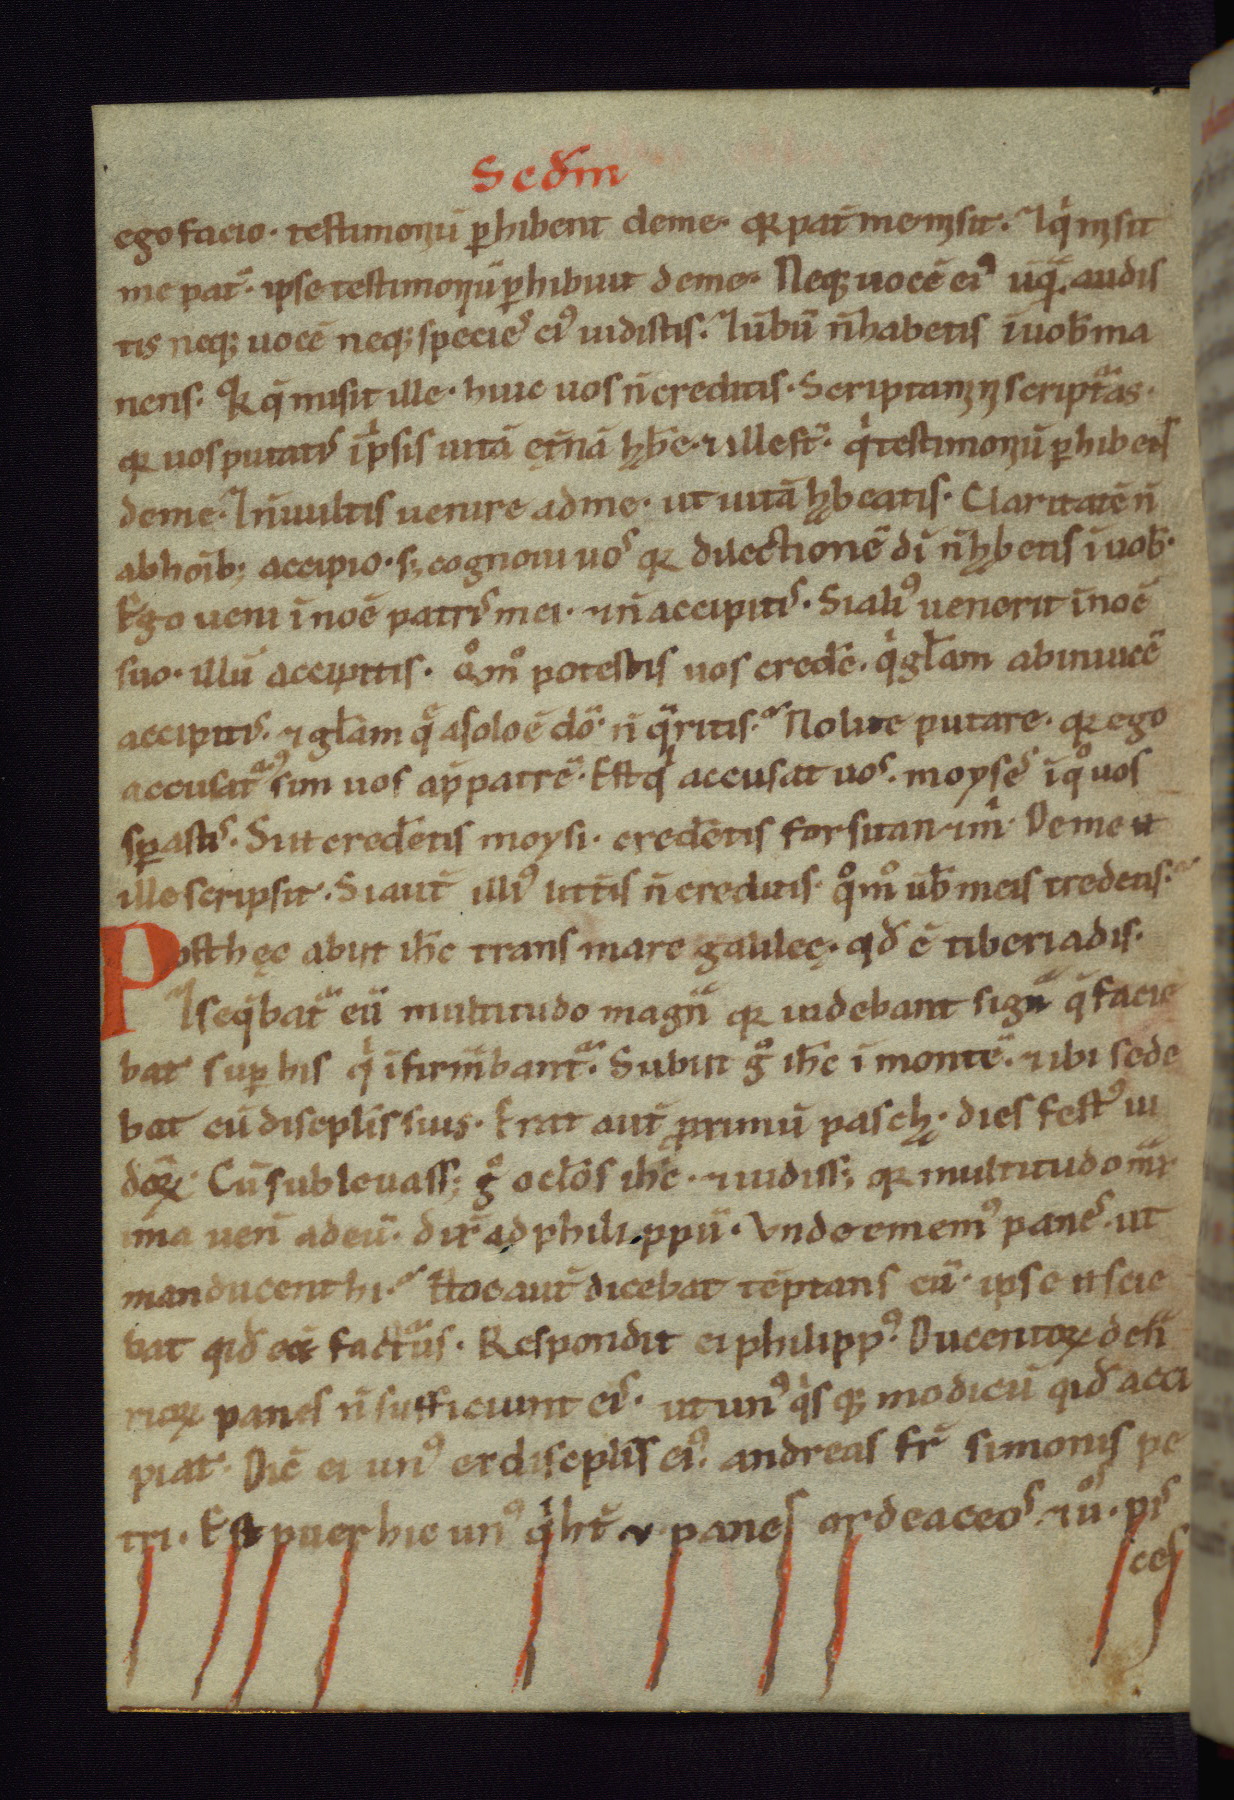 Scdm
ego facio. testimoniū phibent de me. quia pat me misit. Et q misit
me pat. ipse testimoniū phibuit de me. Neq; uocē ei' uq. audis
tis neq; uocē neq; speciē ei' uidistis. Et ubū n habetis ī uob ma
nens. q̄ misit ille. huic uos n̄ creditis. Scriptamini scripťas.
quia uos putatis ī ipsis uitā ęťnā hb̄e. & illę st. q̄ testimoniū phibent
de me. Et n̄ uultis uenire ad me. ut uitā habeatis. Claritatē n̄
ab hoīb; accipio. s; cognoui uos quia dilectionē dī n̄ habetis ī uob.
Ego ueni ī noē patris mei. & n̄ accipitis. Si ali' uenerit ī noē
suo. illū accipitis. Qom̊ potestis uos credē. q̄ gl̄am abinuicē
accipitis. & gl̄am q̄ a solo ē dō. n̄ q̄ritis. Nolite putare. quia ego
accusať sim uos ap patrē. Est q accusat uos. moyses ī q̊ uos
spastis. Si ň credetis moysi. credetis forsitan & m̄. De me ň
ille scripsit. Si aut̄ illi' litt̄is n̄ creditis. qom̊ ub̄ meis credetis.
Post hęc abiit ih̄c trans mare galileę. qd̄ ē tiberiadis.
Et seq̄bať eū multitudo magna quia uidebant signa q̄ facie
bat sup his q̄ īfirmabant. Subiit g̊ ih̄c ī montē. & ibi sede
bat cū discipl̄is suis. Erat aut̄ primū pascha. dies fest' iu
deoꝝ. Cū subleuass; g̊ ocl̄os ih̄c. & uidiss; quia multitudo max
ima uen̄ ad eū. dix̄ ad philippū. Vnde emem' panes. ut
manducent hi. Hoc aut̄ dicebat tēptans eū. ipse ň scie
bat qid eēt facturus. Respondit ei philipp'. Ducentoꝝ dena
rioꝝ panes n̄ sufficiunt eis. ut un' q̄s q; modicū qid acci
piat. Dic̄ ei un' ex discipl̄is ei'. andreas fr̄ simonis pe
tri. Est puer hic un' q̄ ht̄ v panes ordeaceos & uos. pis
ces